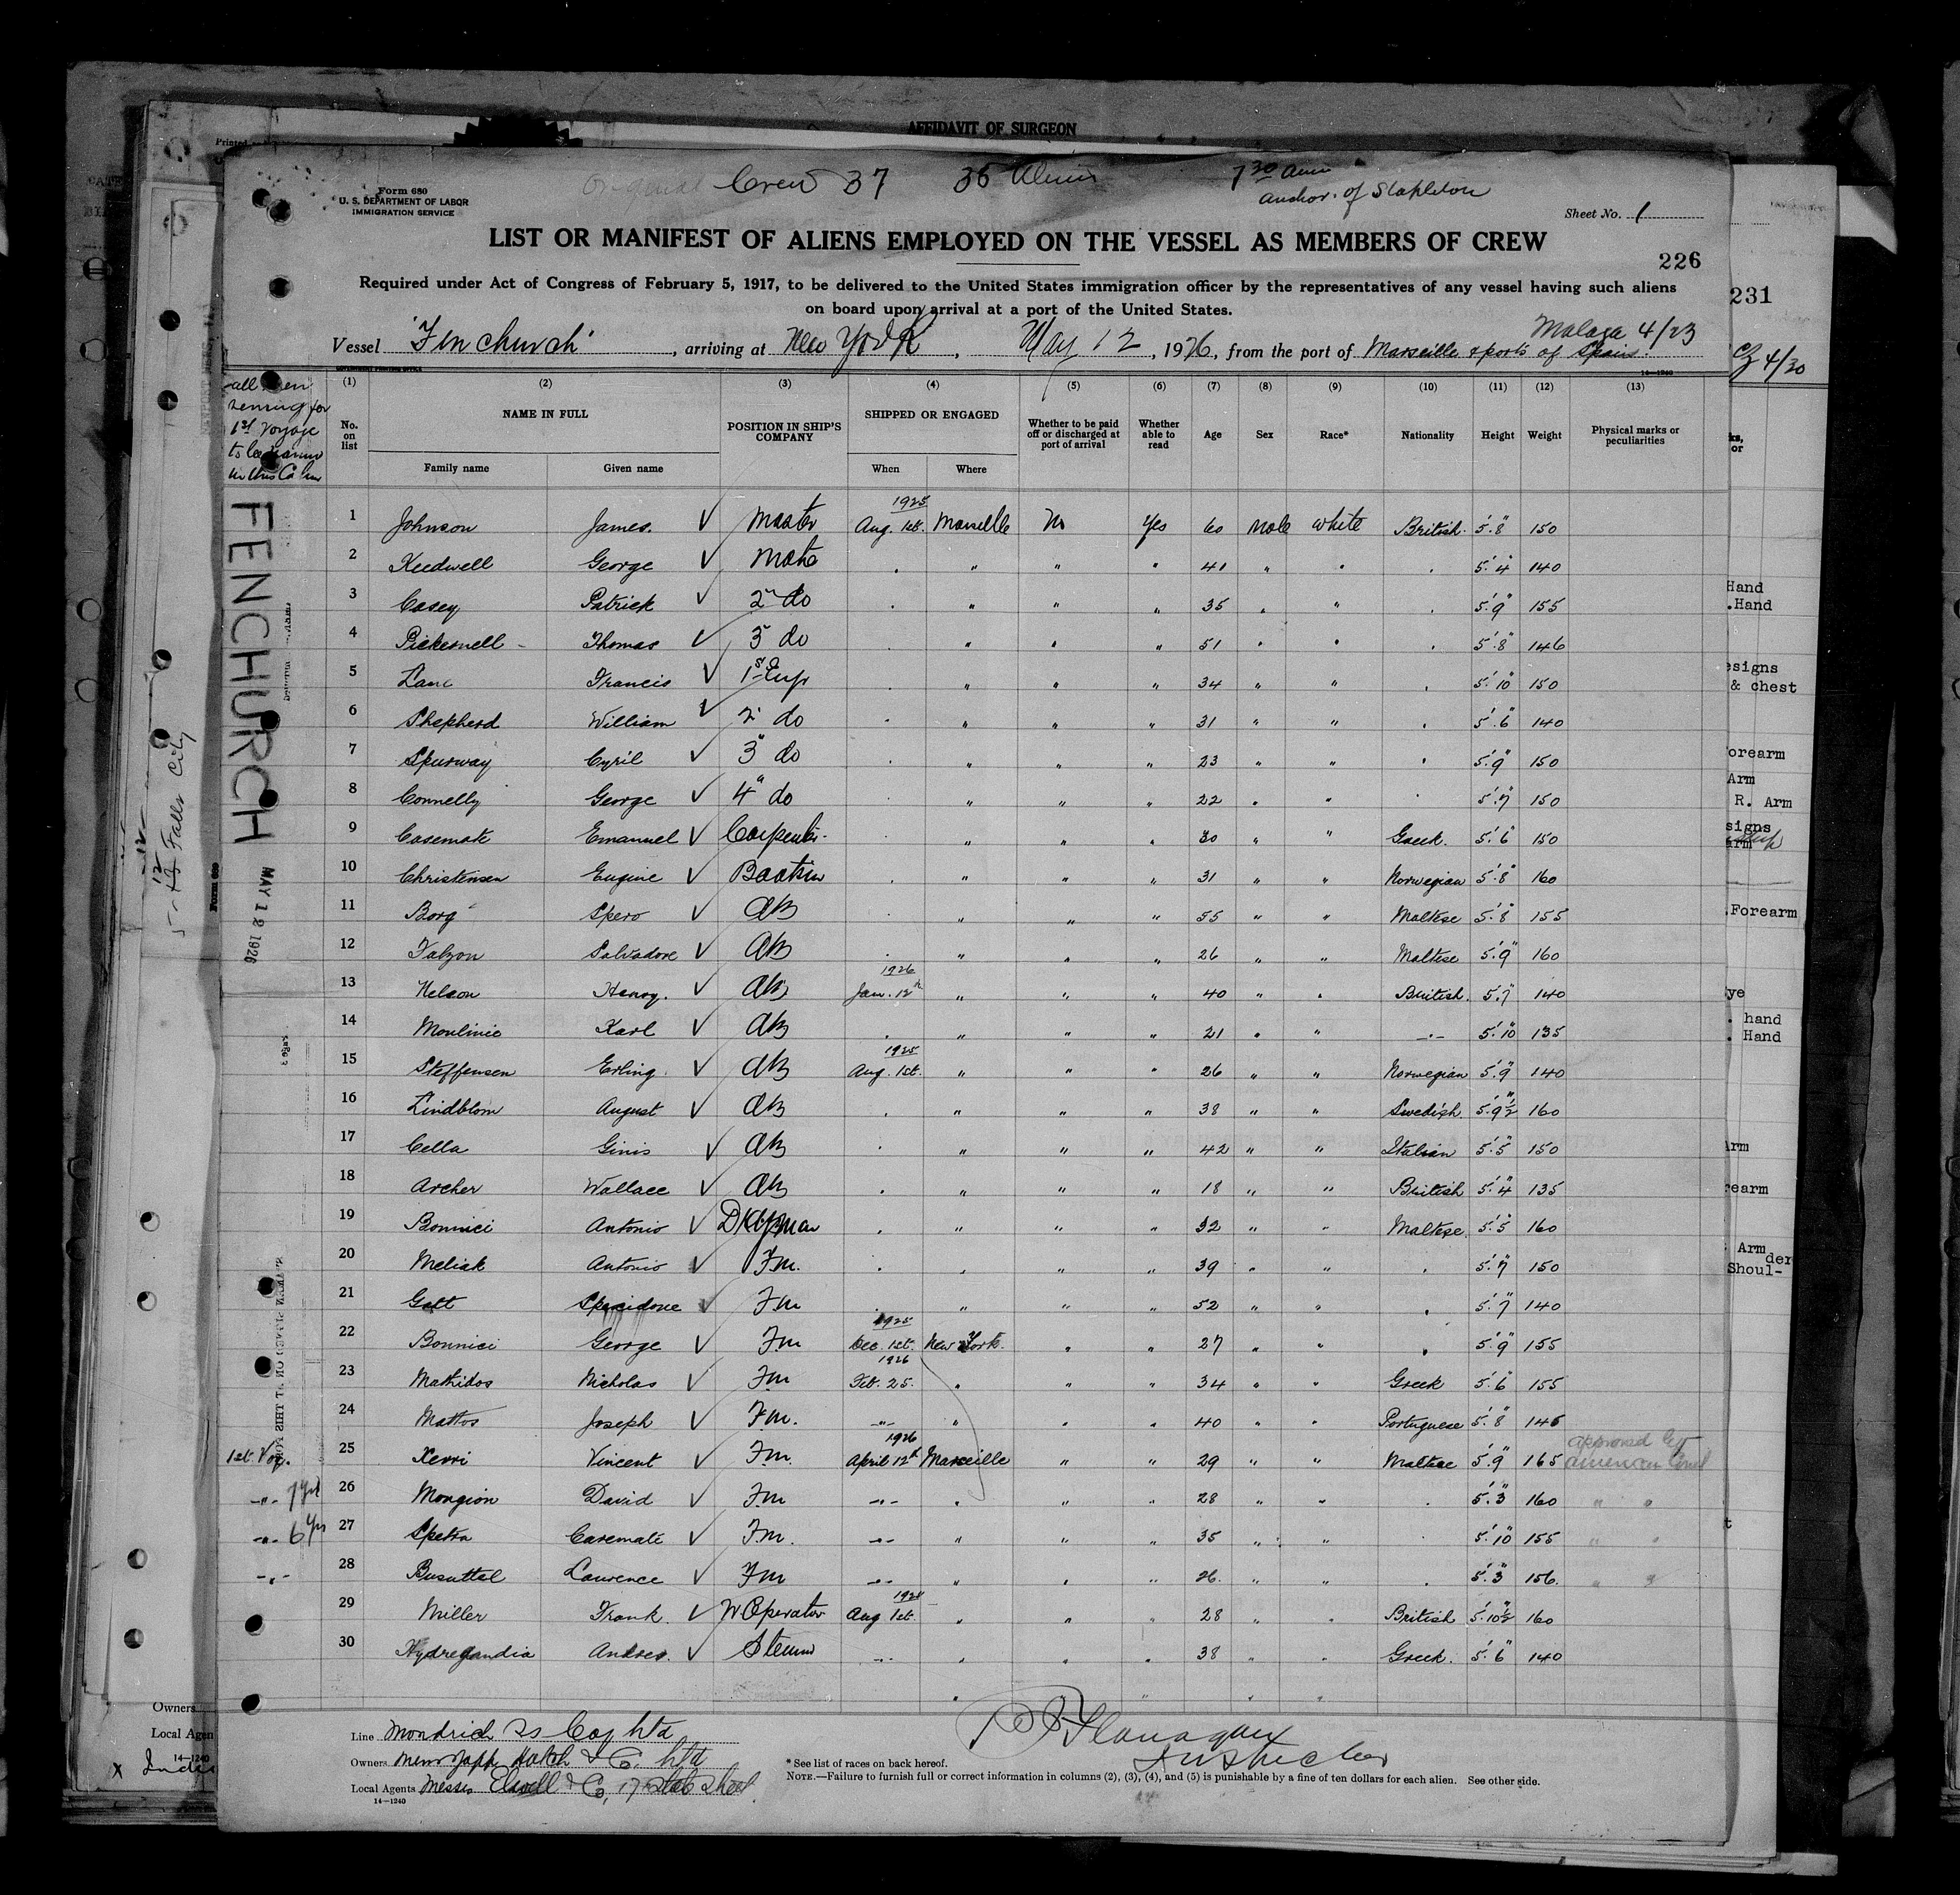 AFFIDAVIT OF SURGEON
Form 680
U. S. DEPARTMENT OF LABOR
IMMIGRATION SERVICE
Original Crew 37 36 Aliens
7 30 am
anchor. of Stapleton
Sheet No. 1
LIST OR MANIFEST OF ALIENS EMPLOYED ON THE VESSEL AS MEMBERS OF CREW
226
231
Required under Act of Congress of February 5, 1917, to be delivered to the United States immigration officer by the representatives of any vessel having such aliens
on board upon arrival at a port of the United States.
Malaga 4/23
Vessel "Fenchurch", arriving at New York, May 12, 1926, from the port of Marseille & ports of Spain.
4/30
(1) (2) (3) (4) (5) (6) (7) (8) (9) (10) (11) (12) (13)
No. on list
NAME IN FULL
Family name Given name
POSITION IN SHIP'S COMPANY
SHIPPED OR ENGAGED
When Where
Whether to be paid off or discharged at port of arrival
Whether able to read
Age Sex Race* Nationality Height Weight Physical marks or peculiarities
FENCHURCH
MAY 12 1926
1 Johnson James. Master 1925 Aug. 1st. Marseille No Yes 60 Male White British 5'.8" 150
2 Keedwell George Mate . " " " 41 " " . 5'.4" 140
3 Casey Patrick 2" do . " " " 35 " " . 5'.9" 155
4 Pickernell Thomas 3" do . " " " 51 " " . 5'.8" 146
5 Lane Francis 1st Engr . " " " 34 " " . 5'.10" 150
6 Shepherd William 2" do . " " " 31 " " . 5'.6" 140
7 Spurway Cyril 3" do . " " " 23 " " . 5'.9" 150
8 Connelly George 4" do . " " " 22 " " . 5'.7" 150
9 Casemate Emanuel Carpenter . " " " 30 " " Greek. 5'.6" 150
10 Christensen Eugine Boatsw . " " " 31 " " Norwegian 5'.8" 160
11 Borg Spero AB . " " " 55 " " Maltese 5'.8" 155
12 Falzon Salvadore AB . " " " 26 " " Maltese 5'.9" 160
13 Nelson Henry. AB 1926 Jan. 12th " " " 40 " " British. 5'.7" 140
14 Moulinie Karl AB . " " " 21 " " -"- 5'.10" 135
15 Steffensen Erling AB 1925 Aug. 1st. " " " 26 " " Norwegian 5'.9" 140
16 Lindblom August AB . " " " 38 " " Swedish. 5'.9½" 160
17 Cella Ginis AB . " " " 42 " " Italian 5'.5" 150
18 Archer Wallace AB . " " " 18 " " British 5'.4" 135
19 Bonnici Antonio Dkyman . " " " 32 " " Maltese. 5'.5" 160
20 Meliak Antonio F.m. . " " " 39 " " . 5'.7" 150
21 Gatt Spiridone F.m . " " " 52 " " . 5'.7" 140
22 Bonnici George F.m 1925 Dec. 1st. New York. " " 27 " " . 5'.9" 155
23 Mathidos Nicholas F.m 1926 Feb. 25. " " " 34 " " Greek 5'.6" 155
24 Mattos Joseph F.m. -"- " " " 40 " " Portuguese 5'.8" 145
1st. Voy. 25 Xerri Vincent F.m. 1926 April 12th Marseille " " 29 " " Maltese 5'.9" 165 approved by american Consl
-"- 7 yrs 26 Mongion David F.m -"- " " " 28 " " . 5'.3" 160 " "
-"- 6 yrs 27 Spetra Caremate F.m. -"- " " " 35 " " . 5'.10" 155 " "
-"- 28 Busuttel Laurence F.m -"- " " " 26. " " . 5'.3" 156. " "
29 Miller Frank. W Operator Aug 1st. " " " 28 " " British 5'.10½" 160
30 Andres. Steww -"- " " " 38 " " Greek. 5'.6" 140
Line SS Coy Ltd
Owners Hatch & Co. Ltd
Local Agents Messrs Elwell & Co, 17 State Street
14—1240
Flanagan
Inspector
* See list of races on back hereof.
NOTE.—Failure to furnish full or correct information in columns (2), (3), (4), and (5) is punishable by a fine of ten dollars for each alien. See other side.
Hand
.Hand
esigns
& chest
orearm
Arm
R. Arm
signs
.Forearm
ye
. hand
. Hand
Arm
rearm
Arm
Shoul-
der
Falls City
Owners
Local Agen
14—1240